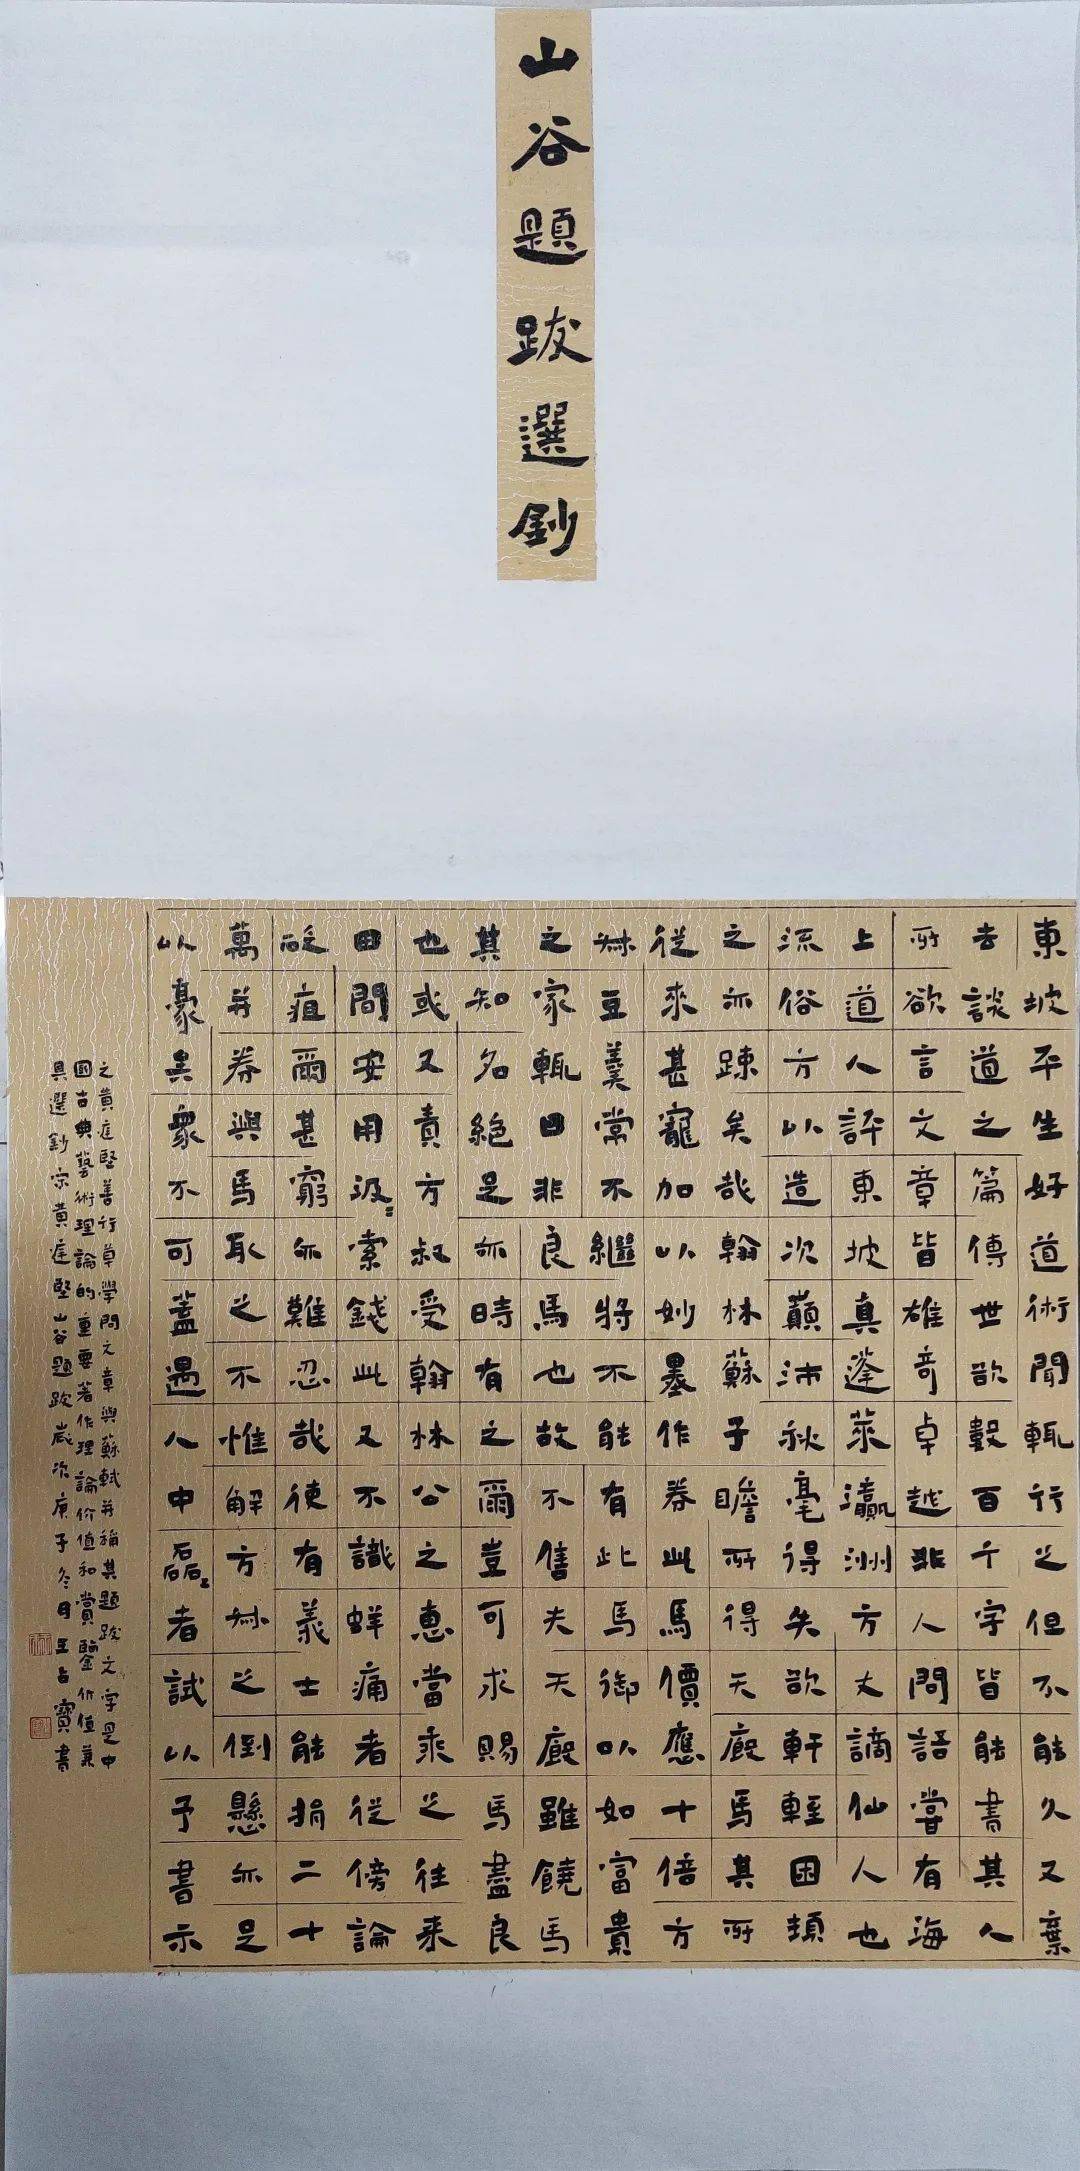 山谷題跋選鈔
東坡平生好道術聞輒行之但不能久又棄
去談道之篇傳世欲數百千字皆能書其人
所欲言文章皆雄奇卓越非人間語嘗有海
上道人評東坡真蓬萊瀛洲方丈謫仙人也
流俗方以造次顛沛秋毫得失欲軒輊困頓
之亦踈矣哉翰林蘇子瞻所得天廄馬其所
從來甚寵加以妙墨作券此馬價應十倍方
叔豆羹常不繼將不能有此馬御以如富貴
之家輒曰非良馬也故不售夫天廄雖饒馬
其知名絕足亦時有之爾豈可求賜馬盡良
也或又責方叔受翰林公之惠當乘之往來
田間安用汲〻索錢此又不識蛘痛者從傍論
砭疽爾甚窮亦難忍哉使有義士能捐二十
萬并券與馬取之不惟解方叔之倒懸亦足
以豪矣眾不可蓋遇人中磊〻者試以予書示
之黃庭堅善行草學問文章與蘇軾并稱其題跋文字是中
國古典藝術理論的重要著作理論价值和賞鑒价值兼
具選鈔宗黃庭堅山谷題跋歲次庚子冬月王占寶書